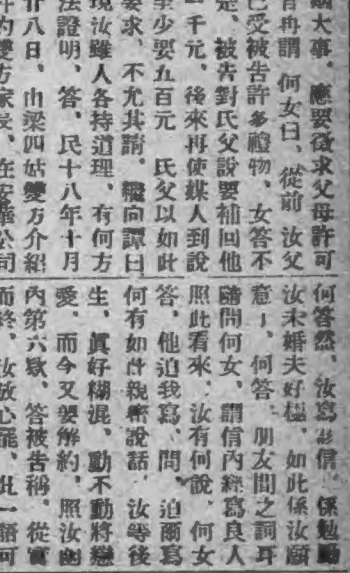 姻大事、應要徵求父母許可
官再謂何女曰、從前汝父
已受被告許多禮物、女答不
是、被告對氏父說要補回他
一千元、後來再使媒人到說
至少要五百元 氏父以如此
要求、不允其請、 向譚曰
現汝雖人各持道理、有何方
法證明、答、民十八年十月
廿八日、由梁四姑雙方介紹
雙方家長、在安華公司
何答然、汝寫 信 係勉
汝未婚夫好極、如此係汝願
意丨、何答、朋友間之詞耳
隨問何女、謂信內經寫良人
照此看來、汝有何說、何女
答、他迫我寫、問、迫爾寫
何有如此親密說話、汝等後
生、眞好糊混、動不動將戀
愛、而今又要解約、照汝函
內第六欵、答被告稱、從
而終、汝放心罷、此一語可